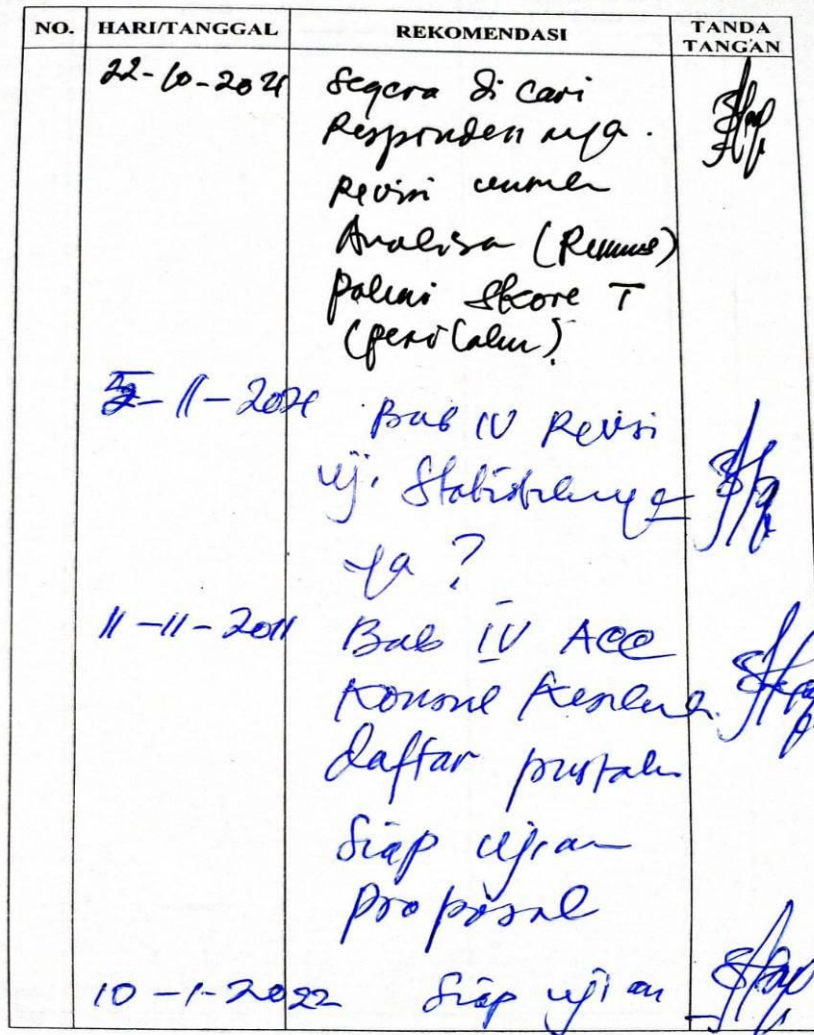 NO. HARI/TANGGAL REKOMENDASI TANDA TANGAN
22-10-2021 Segera di cari
Responden nya.
Revisi
Analisa (Rumus)
Skore T
5-11-2021 Bab IV Revisi
uji Statistiknya
ya ?
11-11-2021 Bab IV ACC
Konsul
daftar pustaka
Siap ujian
proposal
10-1-2022 Siap ujian